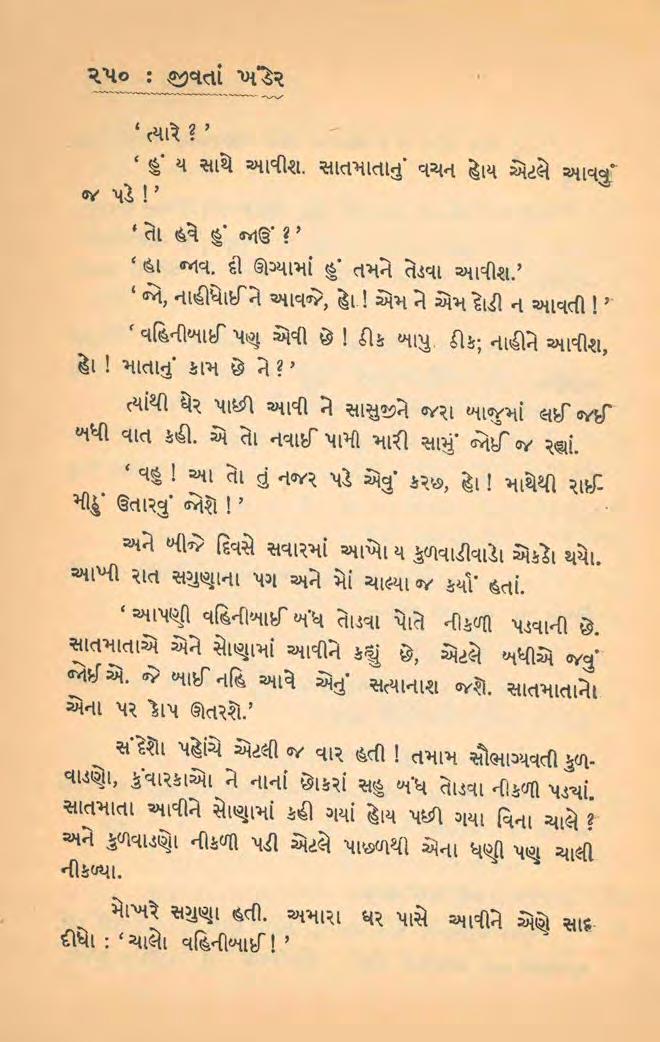 ૨૫૦ : જીવતાં ખંડેર
‘ ત્યારે ? ’
‘ હું ય સાથે આવીશ. સાતમાતાનું વચન હોય એટલે આવવું
જ પડે ! ’
‘ તો હવે હું જાઉં ? ’
‘ હા જાવ. દી ઊગ્યામાં હું તમને તેડવા આવીશ.’
‘ જો, નાહીધોઈ ને આવજે, હો ! એમ ને એમ દોડી ન આવતી ! ’
‘ વહિનીબાઈ પણ એવી છે ! ઠીક બાપુ. ઠીક; નાહીને આવીશ,
હો ! માતાનું કામ છે ને ? ’
ત્યાંથી ઘેર પાછી આવી ને સાસુજીને જરા બાજુમાં લઈ જઈ
બધી વાત કહી. એ તો નવાઈ પામી મારી સામું જોઈ જ રહ્યાં.
‘ વહુ ! આ તો તું નજર પડે એવું કરછ, હો ! માથેથી રાઈ-
મીઠું ઉતારવું જોશે ! ’
અને બીજે દિવસે સવારમાં આખો ય કુળવાડીવાડો એકઠો થયો.
આખી રાત સગુણાના પગ અને મોં ચાલ્યા જ કર્યાં હતાં.
‘ આપણી વહિનીબાઈ બંધ તોડવા પોતે નીકળી પડવાની છે.
સાતમાતાએ એને સોણામાં આવીને કહ્યું છે, એટલે બધીએ જવું
જોઈએ. જે બાઈ નહિ આવે એનું સત્યાનાશ જશે. સાતમાતાનો
એના પર કોપ ઊતરશે.’
સંદેશો પહોંચે એટલી જ વાર હતી ! તમામ સૌભાગ્યવતી કુળ-
વાડણો, કુંવારકાઓ ને નાનાં છોકરાં સહુ બંધ તોડવા નીકળી પડ્યાં.
સાતમાતા આવીને સોણામાં કહી ગયાં હોય પછી ગયા વિના ચાલે ?
અને કુળવાડણો નીકળી પડી એટલે પાછળથી એના ધણી પણ ચાલી
નીકળ્યા.
મોખરે સગુણા હતી. અમારા ઘર પાસે આવીને એણે સાદ
દીધો : ‘ ચાલો વહિનીબાઈ ! ’